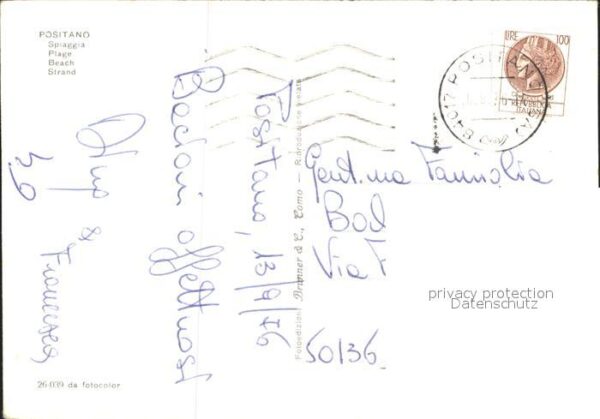 POSITANO
Spiaggia
Plage
Beach
Strand
LIRE 100
REPVBBLICA
ITALIANA
84017 POSITANO
Positano, 13/9/76
Bacioni affettuosi
&
Francesca
Fotoedizioni Brunner & C., Como — Riproduzione vietata
Gent.ma Famiglia
Via
50136
privacy protection
Datenschutz
26-039 da fotocolor